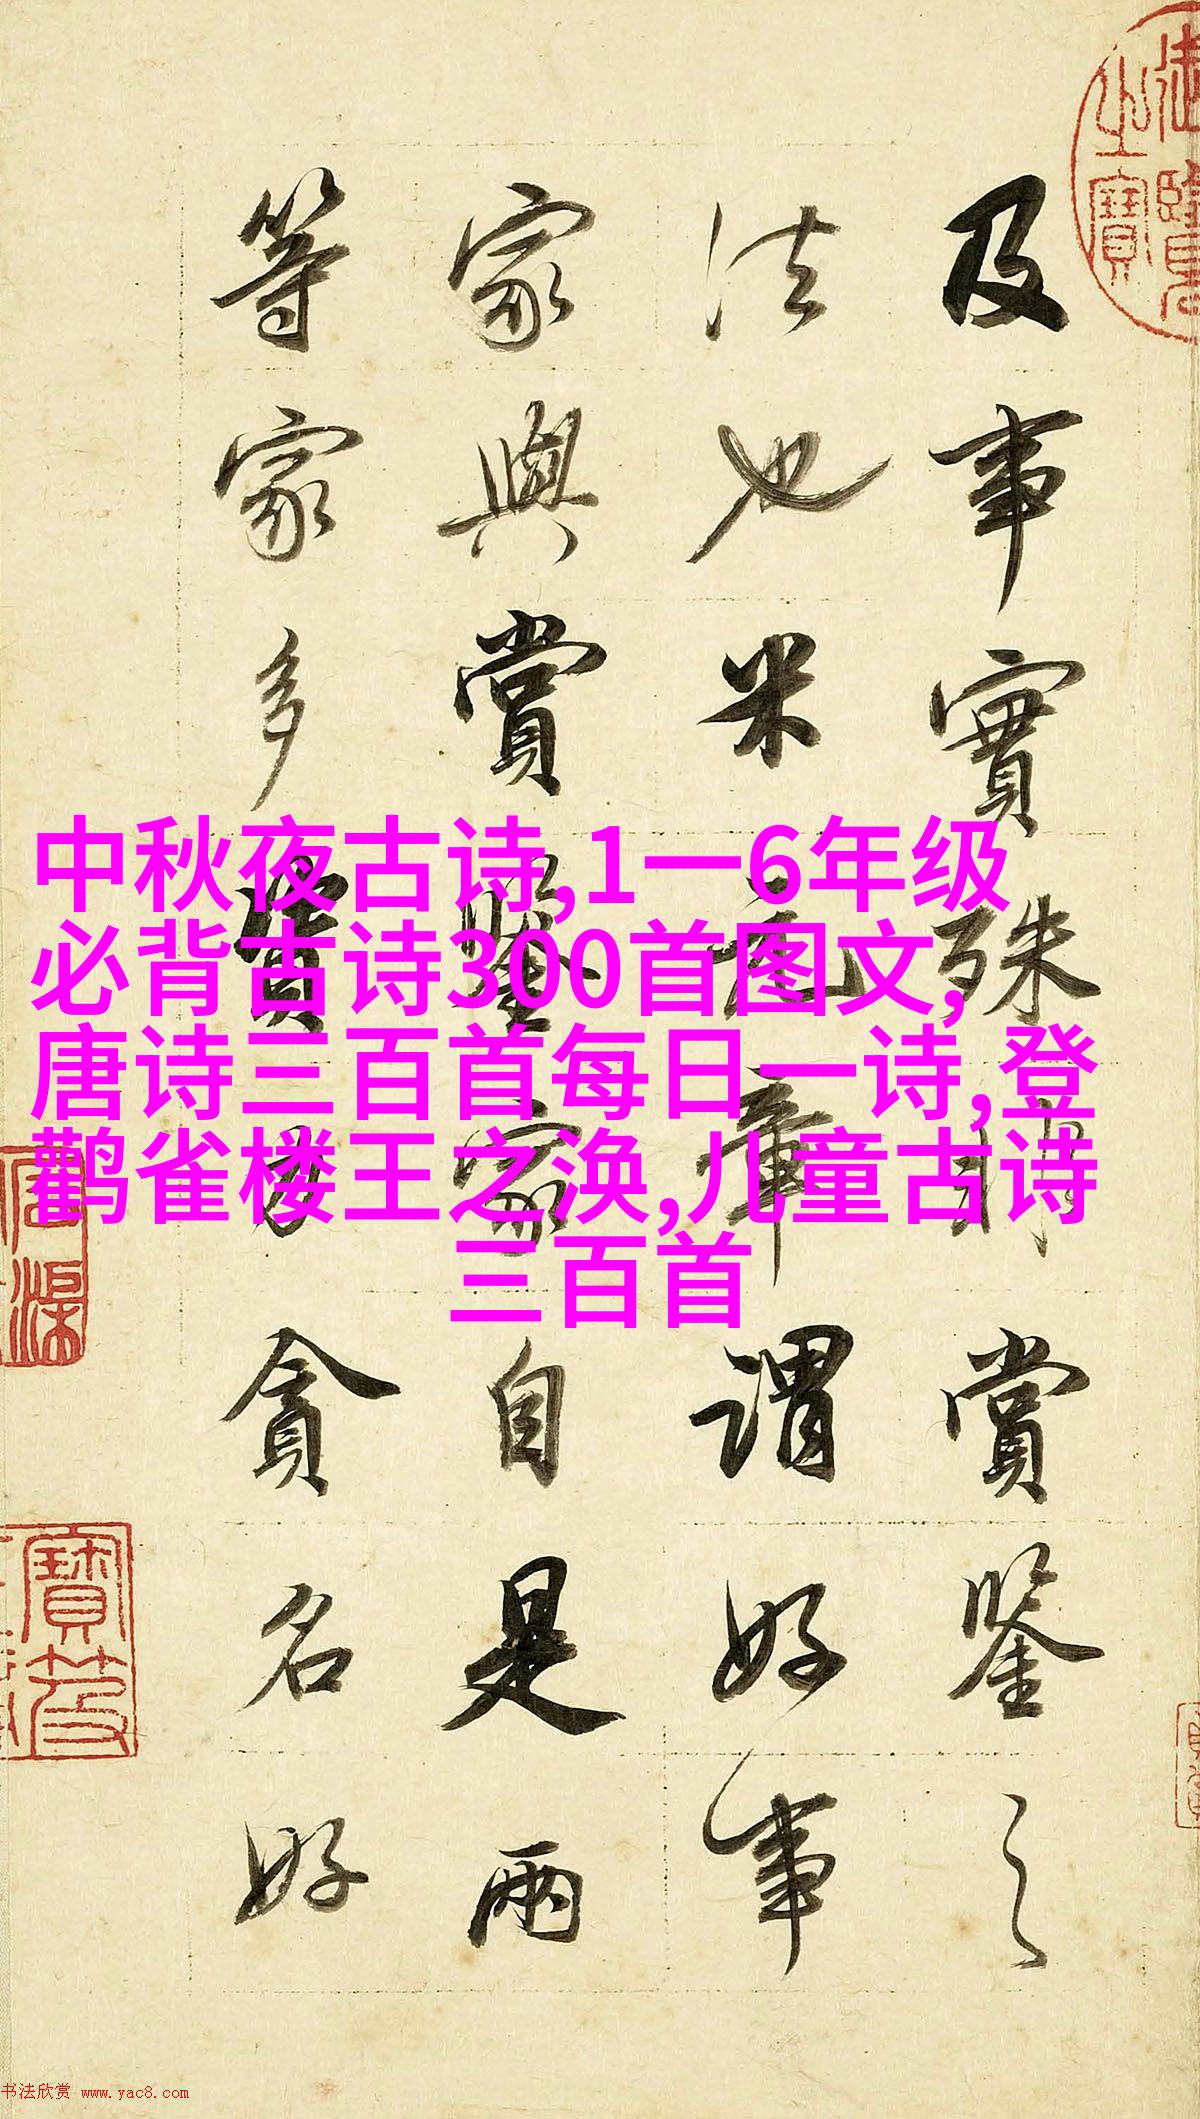 中秋夜古诗,1一6年级
必背古诗300首图文,
唐诗三百首每日一诗,登
鹳雀楼王之涣,儿童古诗
三百首
及事實殊賞鑒之
法也米元章謂好事
家與賞鑒家自是兩
等家多資力貪名好
书法欣赏 www.yac8.com